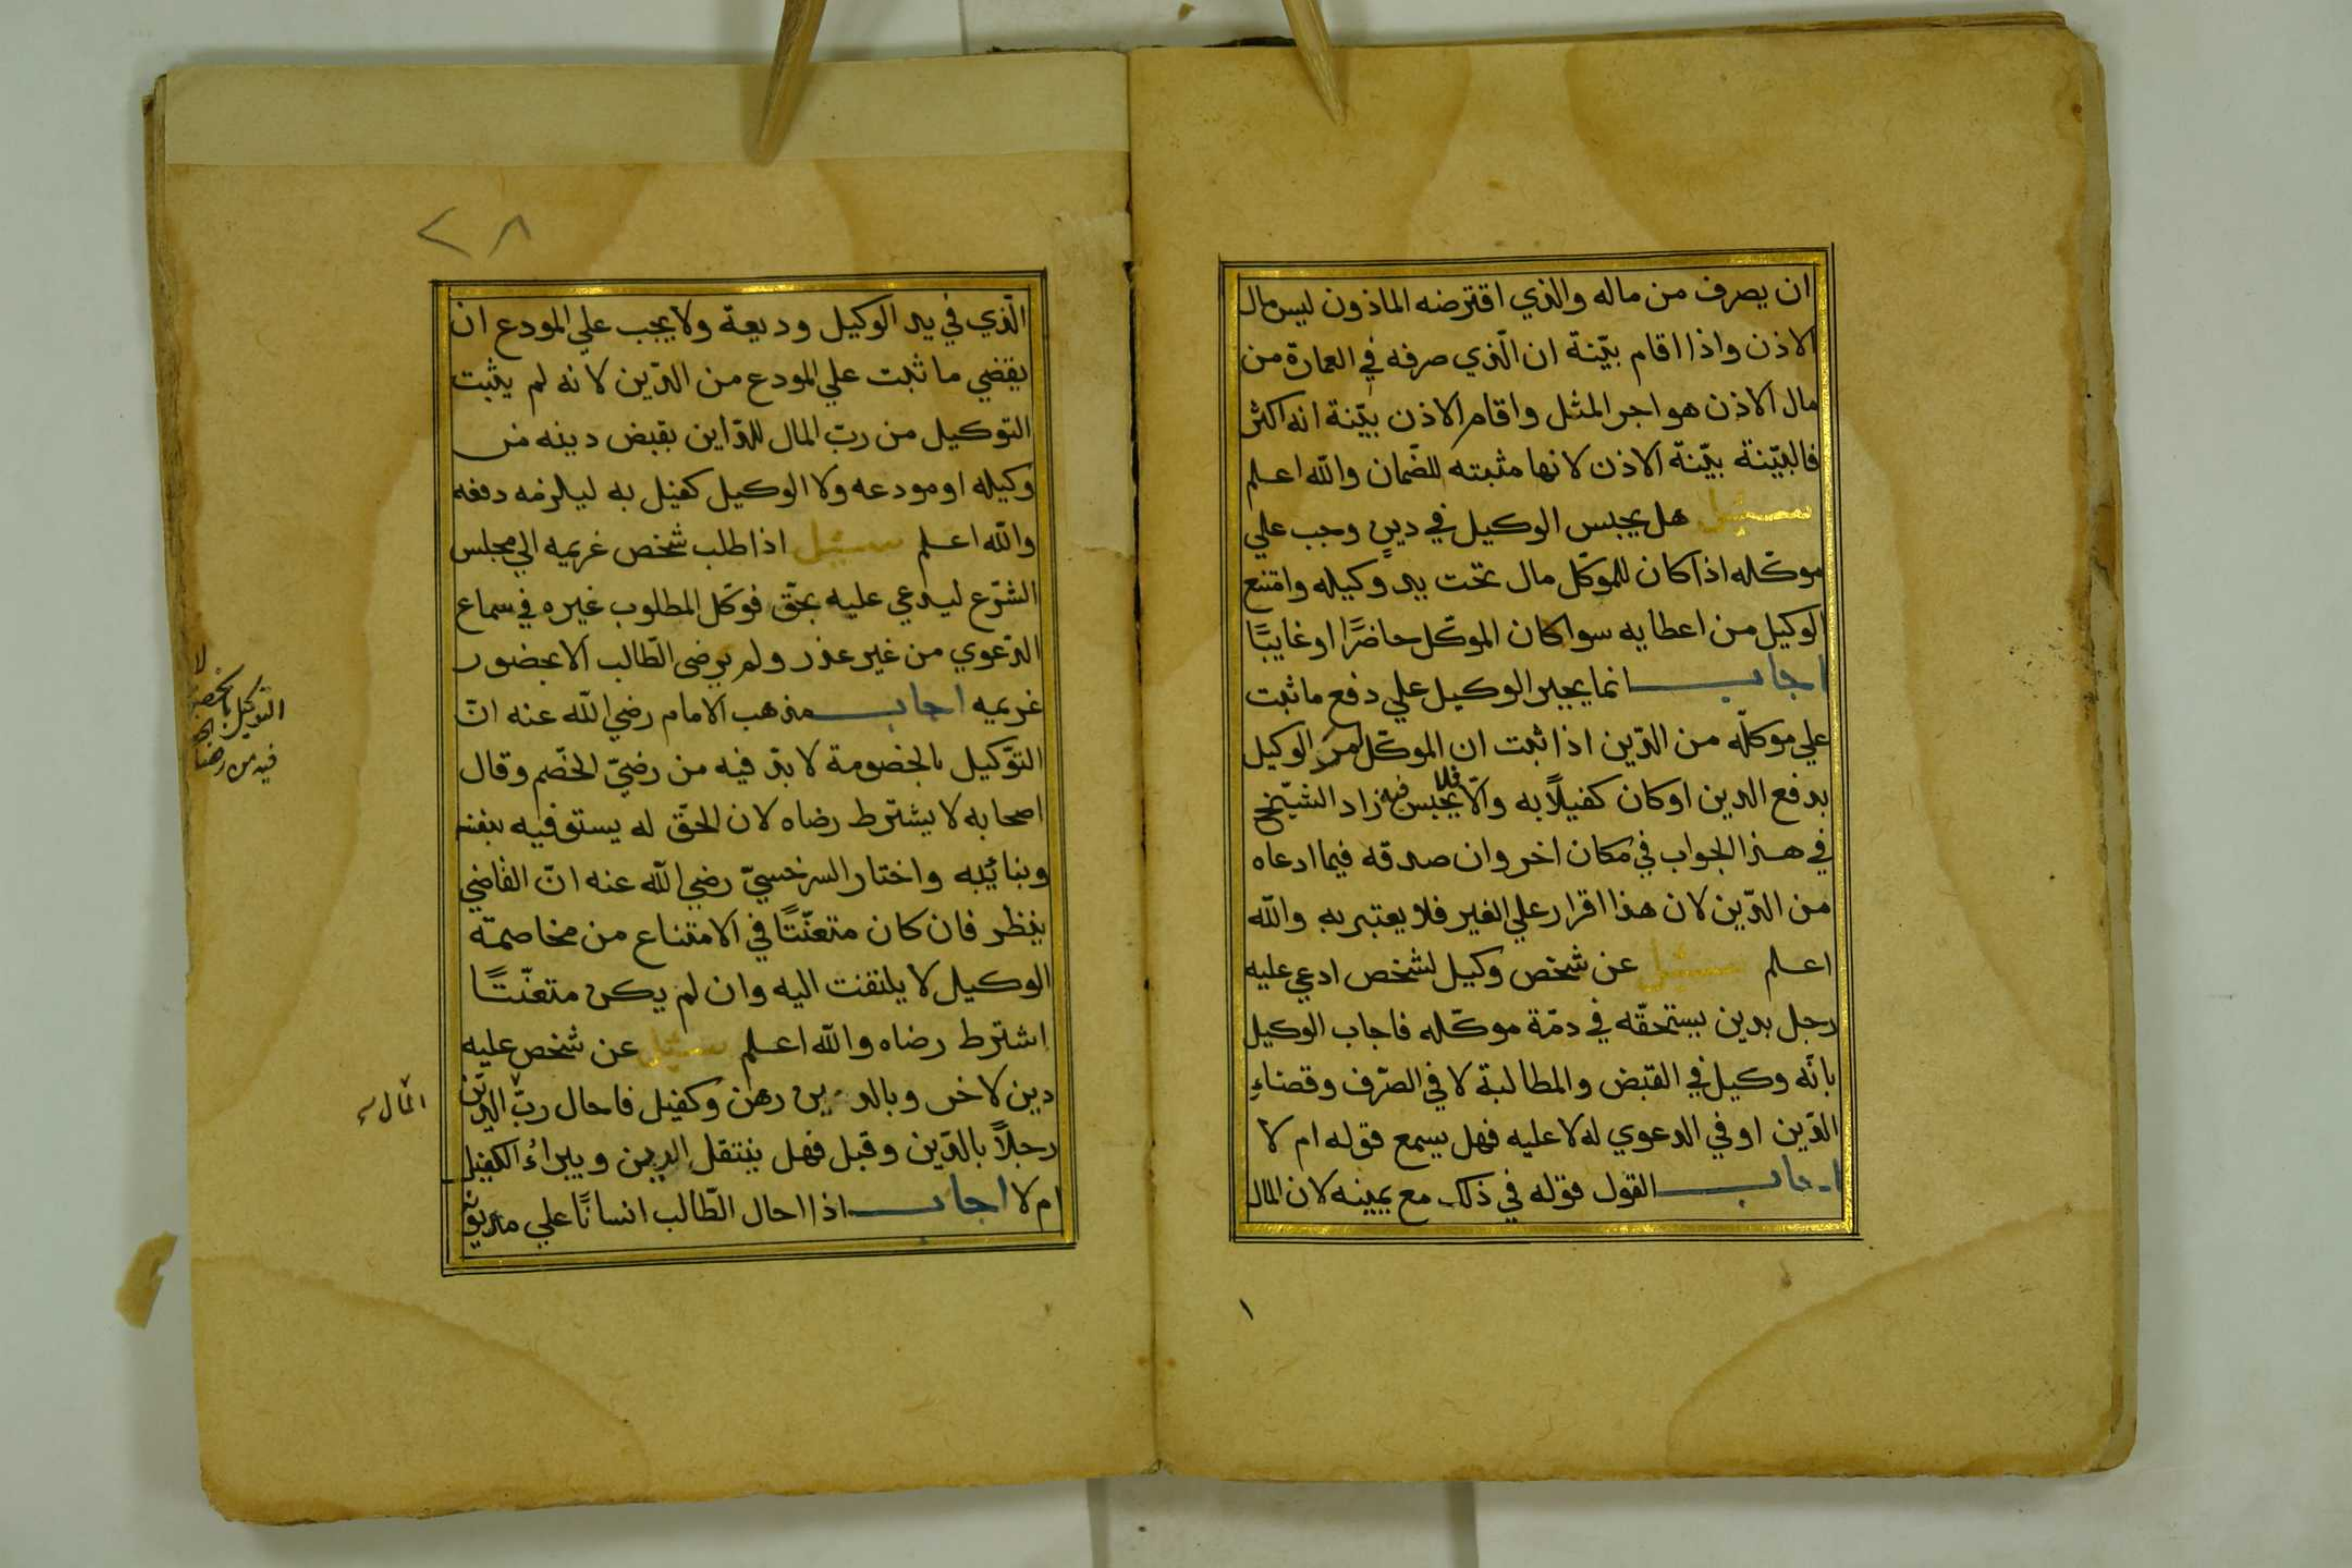 ان يصرف من ماله والذي اقترضه الماذون ليس مال
الاذن واذا اقام بيّنة ان الّذي صرفه في العمارة من
مال الاذن هو اجر المثل واقام الاذن بيّنة انه اكثر
فالبيّنة بيّنة الاذن لانها مثبته للضّمان والله اعلم
سئيل هل يحبس الوكيل في دين وجب علي
موكّله اذا كان للموكّل مال تحت يد وكيله وامتنع
الوكيل من اعطايه سوا كان الموكّل حاضرًا او غايبًا
اجاب انما يجبر الوكيل علي دفع ما ثبت
علي موكلّه من الدّين اذا ثبت ان الموكّل امر الوكيل
بدفع الدين او كان كفيلاً به والّا فلا يحبس فيه زاد الشّيخ
في هذا الجواب في مكان اخر وان صدقه فيما ادعاه
من الدّين لان هذا اقرار علي الغير فلا يعتبر به والله
اعلم سئيل عن شخص وكيل لشخص ادعي عليه
رجل بدين يستحقّه في دمّة موكّله فاجاب الوكيل
بانّه وكيل في القبض والمطالبة لا في الصّرف وقضاء
الدّين او في الدعوي له لا عليه فهل يسمع قوله ام لا
اجاب القول قوله في ذلك مع يمينه لان المال
٢٨
الّذي في يد الوكيل وديعة ولا يجب علي المودع ان
يقضي ما ثبت علي المودع من الدّين لانه لم يثبت
التوكيل من ربّ المال للدّاين بقبض دينه من
وكيله او مودعه ولا الوكيل كفيل به ليلزمه دفعه
والله اعلم سئيل اذا طلب شخص غريمه الي مجلس
الشّرع ليدعي عليه بحقّ فوكّل المطلوب غيره في سماع
الدّعوي من غير عذر ولم يرضى الطّالب الا بحضور
غريمه اجاب مذهب الامام رضي الله عنه انّ
التوّكيل بالخصومة لا بدّ فيه من رضيّ الخصم وقال
اصحابه لا يشترط رضاه لان الحقّ له يستوفيه بنفسه
وبنائيبه واختار السرخسيّ رضي الله عنه انّ القاضي
ينظر فان كان متعنّتًا في الامتناع من مخاصمة
الوكيل لا يلتفت اليه وان لم يكن متعنّتًا
اشترط رضاه والله اعلم سئيل عن شخص عليه
دين لاخر وبالدين رهن وكفيل فاحال ربّ الدّين
رجلاً بالدّين وقبل فهل ينتقل الدين ويبراءُ الكفيل
ام لا اجاب اذا احال الطّالب انسانًا علي مديونه
لا
التوكيل
فيه من
المال